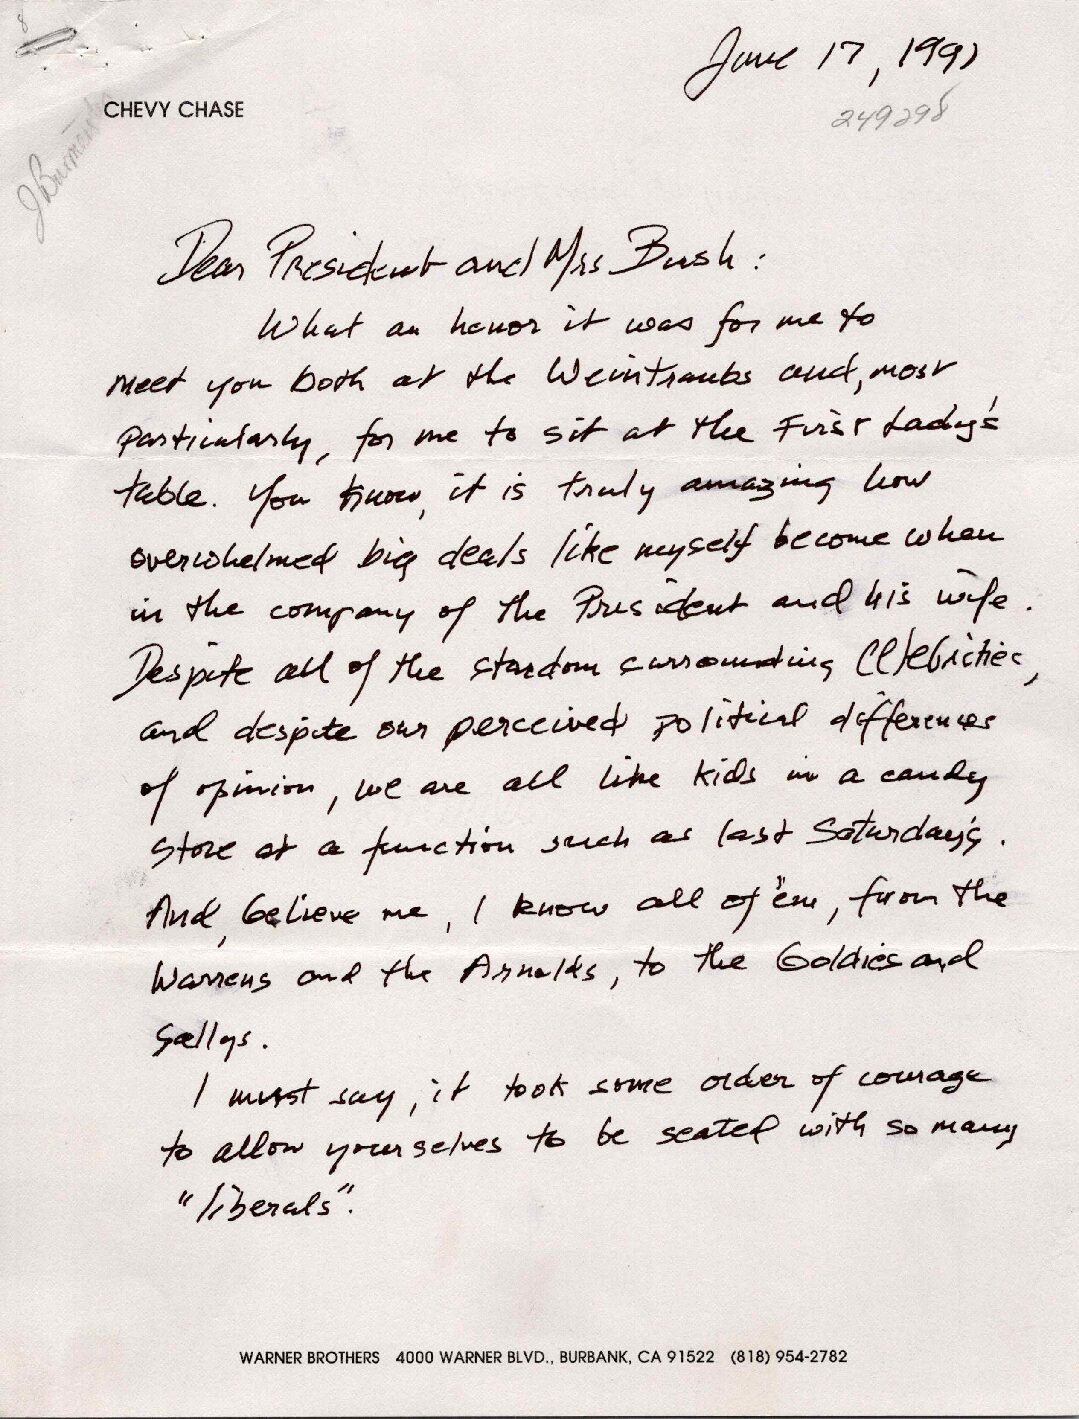 8
June 17, 1991
CHEVY CHASE
249298
Dear President and Mrs Bush:
What an honor it was for me to
meet you both at the Weintraubs and, most
particularly, for me to sit at the First Lady's
table. You know, it is truly amazing how
overwhelmed big deals like myself become when
in the company of the President and his wife.
Despite all of the stardom surrounding celebrities,
and despite our perceived political differences
of opinion, we are all like kids in a candy
store at a function such as last Saturday's.
And, believe me, I know all of "em, from the
Warrens and the Arnolds, to the Goldies and
Sallys.
I must say, it took some order of courage
to allow yourselves to be seated with so many
"liberals".
WARNER BROTHERS 4000 WARNER BLVD., BURBANK, CA 91522 (818) 954-2782